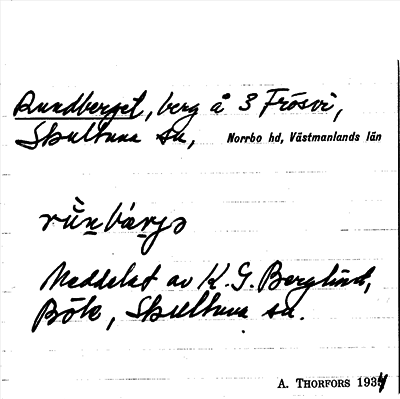 Rundberget, berg å 3 Frösvi,
Skultuna sn, Norrbo hd, Västmanlands län
Meddelat av K. G. Berglind,
Böle, Skultuna sn.
A. THORFORS 1934